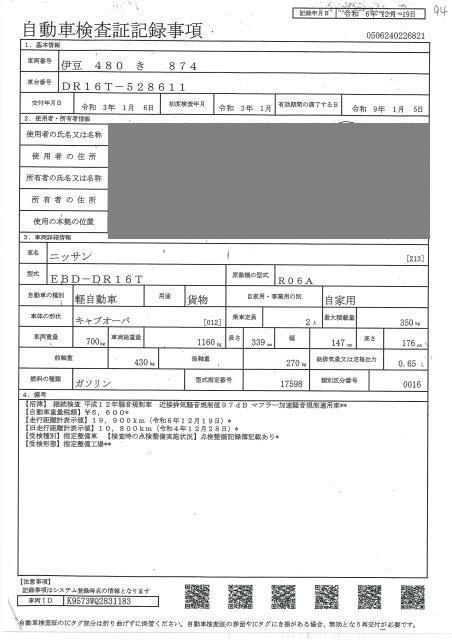 94
記録年月日 令和 6年12月19日
自動車検査証記録事項
0506240226821
1. 基本情報
車両番号 伊豆 480 き 874
車台番号 DR16T-528611
交付年月日 令和 3年 1月 6日 初度検査年月 令和 3年 1月 有効期間の満了する日 令和 9年 1月 5日
2. 使用者・所有者情報
使用者の氏名又は名称
使用者の住所
所有者の氏名又は名称
所有者の住所
使用の本拠の位置
3. 車両詳細情報
車名 ニッサン [213]
型式 EBD-DR16T 原動機の型式 R06A
自動車の種別 軽自動車 用途 貨物 自家用・事業用の別 自家用
車体の形状 キャブオーバ [012] 乗車定員 2人 最大積載量 350kg
車両重量 700kg 車両総重量 1160kg 長さ 339cm 幅 147cm 高さ 176cm
前軸重 430kg 後軸重 270kg 総排気量又は定格出力 0.65 L
燃料の種類 ガソリン 型式指定番号 17598 類別区分番号 0016
4. 備考
【沼津】 継続検査 平成12年騒音規制車 近接排気騒音規制値97dB マフラー加速騒音規制適用車**
【自動車重量税額】￥6,600*
【走行距離計表示値】19,900km(令和6年12月19日)*
【旧走行距離計表示値】10,800km(令和4年12月28日)*
【受検種別】指定整備車 【検査時の点検整備実施状況】点検整備記録簿記載あり*
【受検形態】指定整備工場**
【注意事項】
記録事項はシステム登録時点の情報となります
車両ID K9573WQ2831183
自動車検査証のICタグ部分は折り曲げずに保管ください。自動車検査証の券面やICタグにき損がある場合、無効となり再交付が必要です。